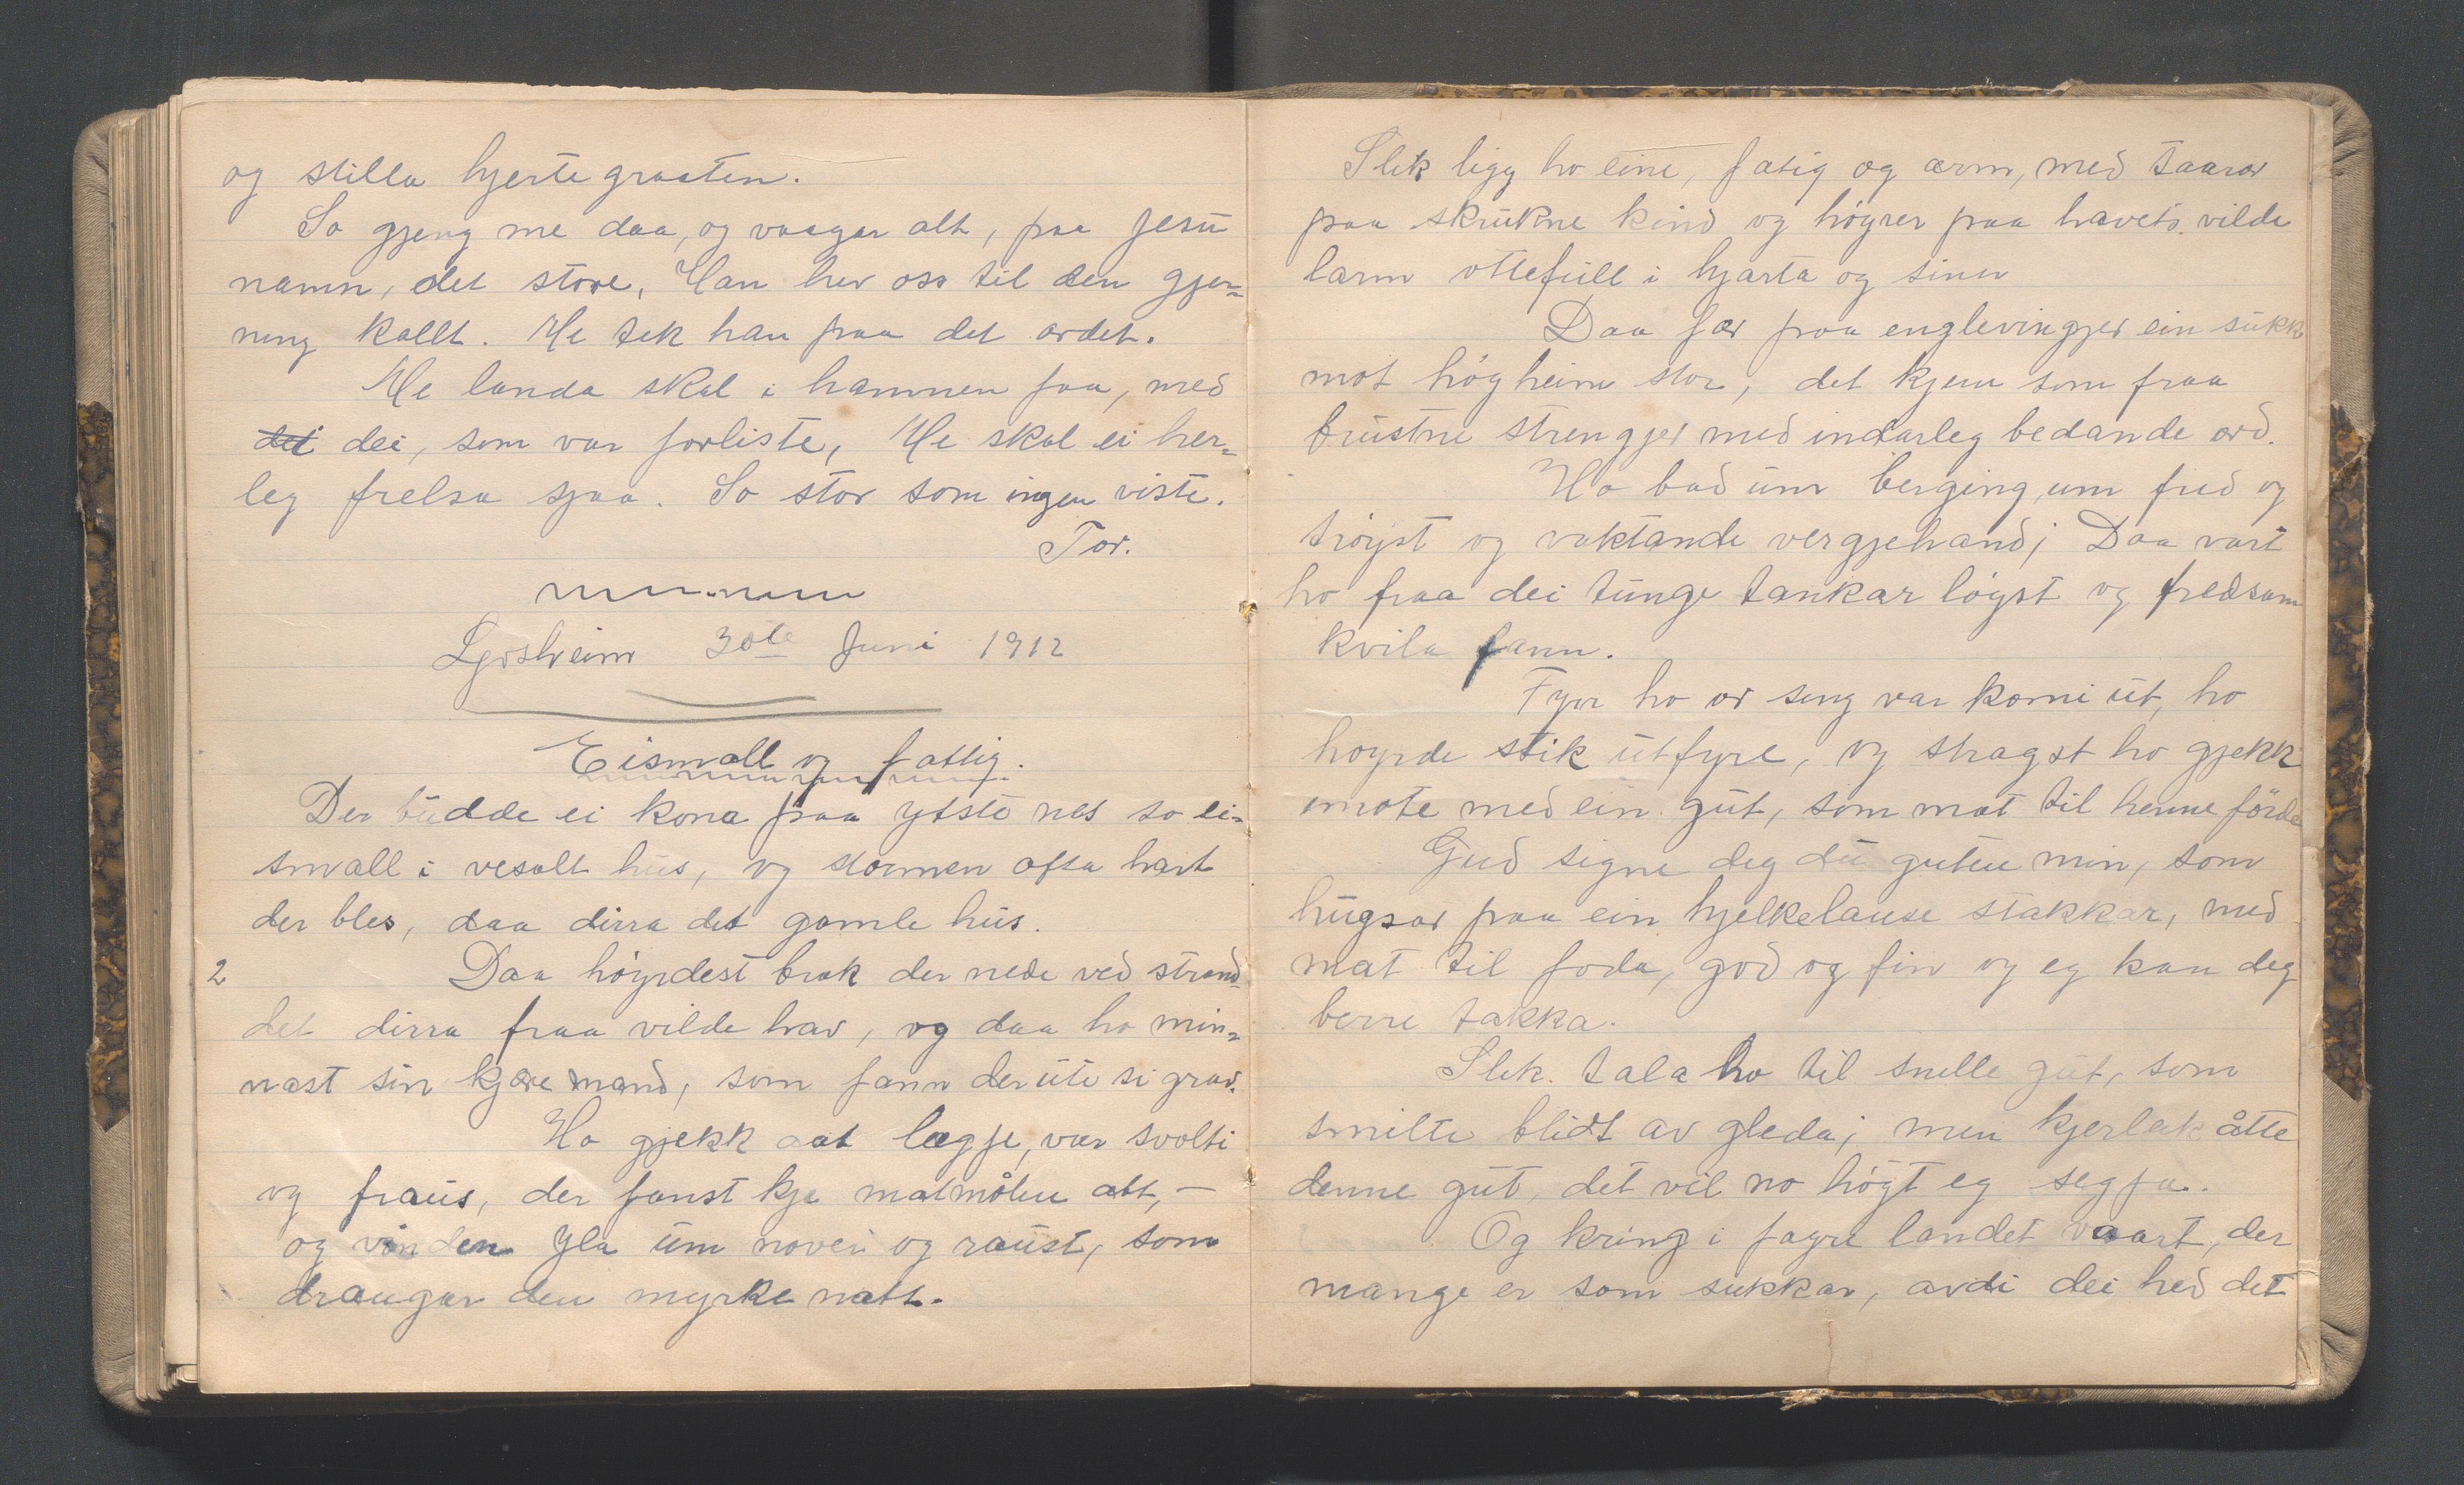 og stilla hjertegraaten.
So gjeng me daa, og vaagar alt, paa Jesu
namn, det store, Han hev oss til den gjer=
ning kallt. Me tek han paa det ordet.
Me landa skal i hamnen faa, med
det dei, som var forliste, Me skal ei her=
leg frelsa sjaa. So stor som ingen viste.
Tor.
30te Juni 1912
Eismall og fattig.
Der budde ei kona paa ytste nes so ei=
small i vesalt hus, og stormen ofta hart
der bles, daa dirra det gamle hus.
2 Daa höyrdest brak der nede ved strand
det dirra fraa vilde hav, og daa ho min=
nast sin kjære mand, som fann derute si grav.
Ho gjekk aat lægje, var svolti
og fraus, der fanst kje matmålen att, —
og vinden yla um noven og raust, som
draugar den myrke natt.
Slik ligg ho eine, fatig og arm, med taarar
paa skrukne kind og höyrer paa havets vilde
larm ottefull i hjarta og sinn
Daa far paa englevingjer ein sukk
mot högheim stor, det kjem som fraa
brustne strengjer med inderleg bedande ord.
Ho bad um berging, um fred og
tröyst og vaktande vergjehand; Daa vart
ho fraa dei tunge tankar löyst og fredsam
kvila fann.
Fyrr ho or seng var komi ut, ho
høyrde stik utfyre, og stragst ho gjekk
imote med ein gut, som mat til henne förde
Gud signe deg du guten min, som
hugsar paa ein hjelkelause stakkar, med
mat til foda, god og fin og eg kan deg
berre takka.
Slik tala ho til snille gut, som
smilte blidt av gleda; men kjerleik åtte
denne gut, det vil no högt eg segja.
Og kring i fagre landet vaart, der
mange er som sukkar, avdi dei hed det